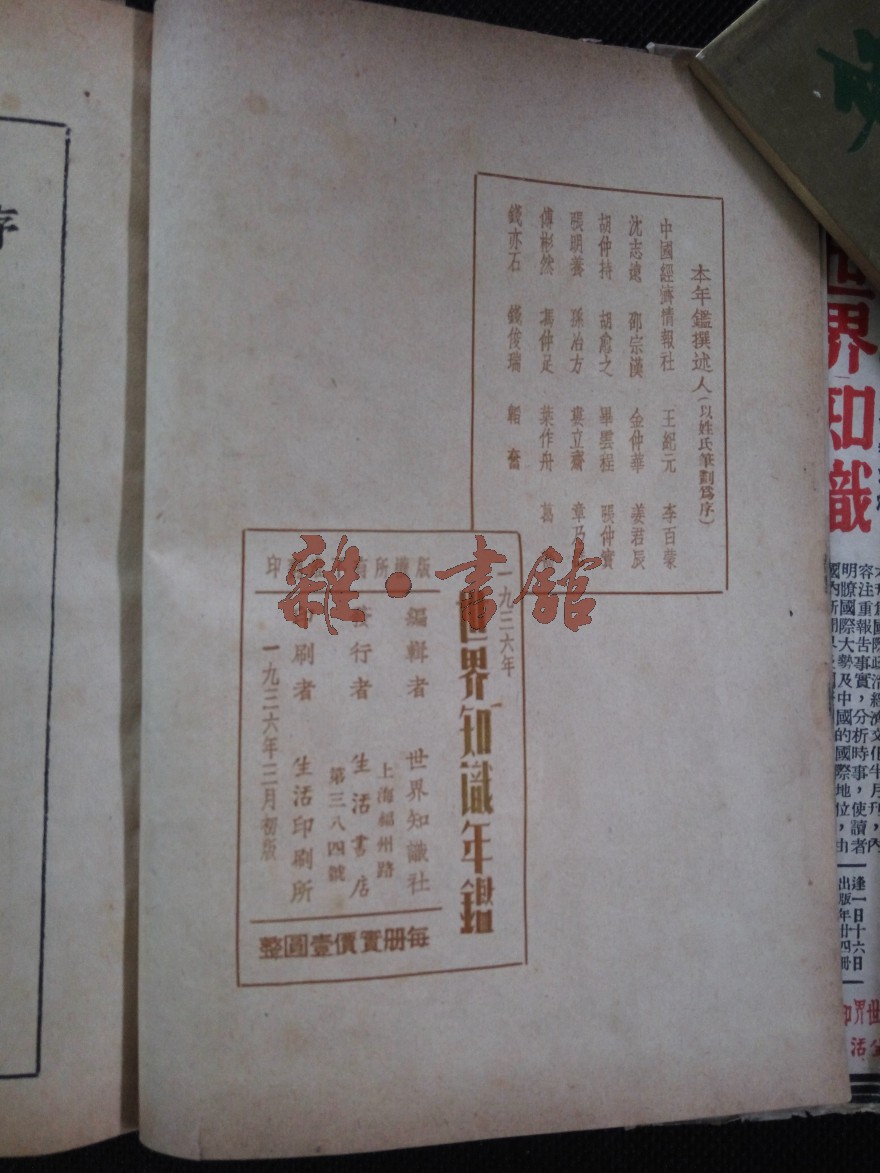 本年鑑撰述人(以姓氏筆劃爲序)
中國經濟情報社 王紀元 李百蒙
沈志遠 邵宗漢 金仲華 姜君辰
胡仲持 胡愈之 畢雲程 張仲實
張明養 孫冶方 婁立齋 章乃
傅彬然 馮仲足 葉作舟 葛
錢亦石 錢俊瑞 韜奮
一九三六年
世界知識年鑑
版權所有
印
編輯者 世界知識社
發行者 生活書店
上海福州路
第三八四號
印刷者 生活印刷所
一九三六年三月初版
每册實價壹圓整
雜·書館
世界知識
容注重報告事實,分析時事,使讀者
明瞭國際大勢及中國的國際地位,由
逢一日十六日
出版年廿四册